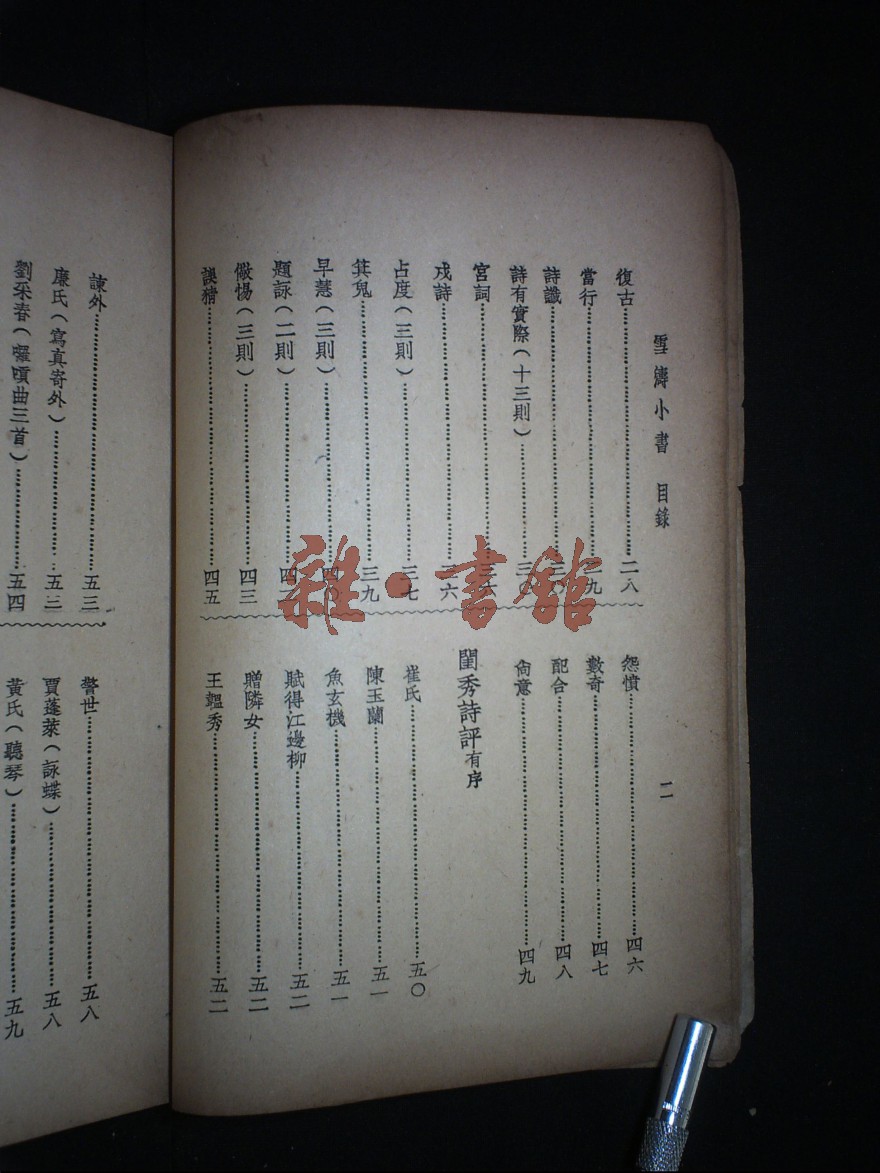 雪濤小書 目錄
二
復古二八
當行二九
詩讖
詩有實際（十三則）三〇
宮詞
戍詩三六
占度（三則）三七
箕兒三九
早慧（三則）四〇
題詠（二則）
儆惕（三則）四三
誤猜四五
怨憤四六
數奇四七
配合四八
尙意四九
閨秀詩評有序
崔氏五〇
陳玉蘭五一
魚玄機五一
賦得江邊柳五二
贈隣女五二
王韞秀五二
諫外五三
廉氏（寫真寄外）五三
劉采春（囉嗊曲三首）五四
警世五八
賈蓬萊（詠蝶）五八
黃氏（聽琴）五九
雜·書館